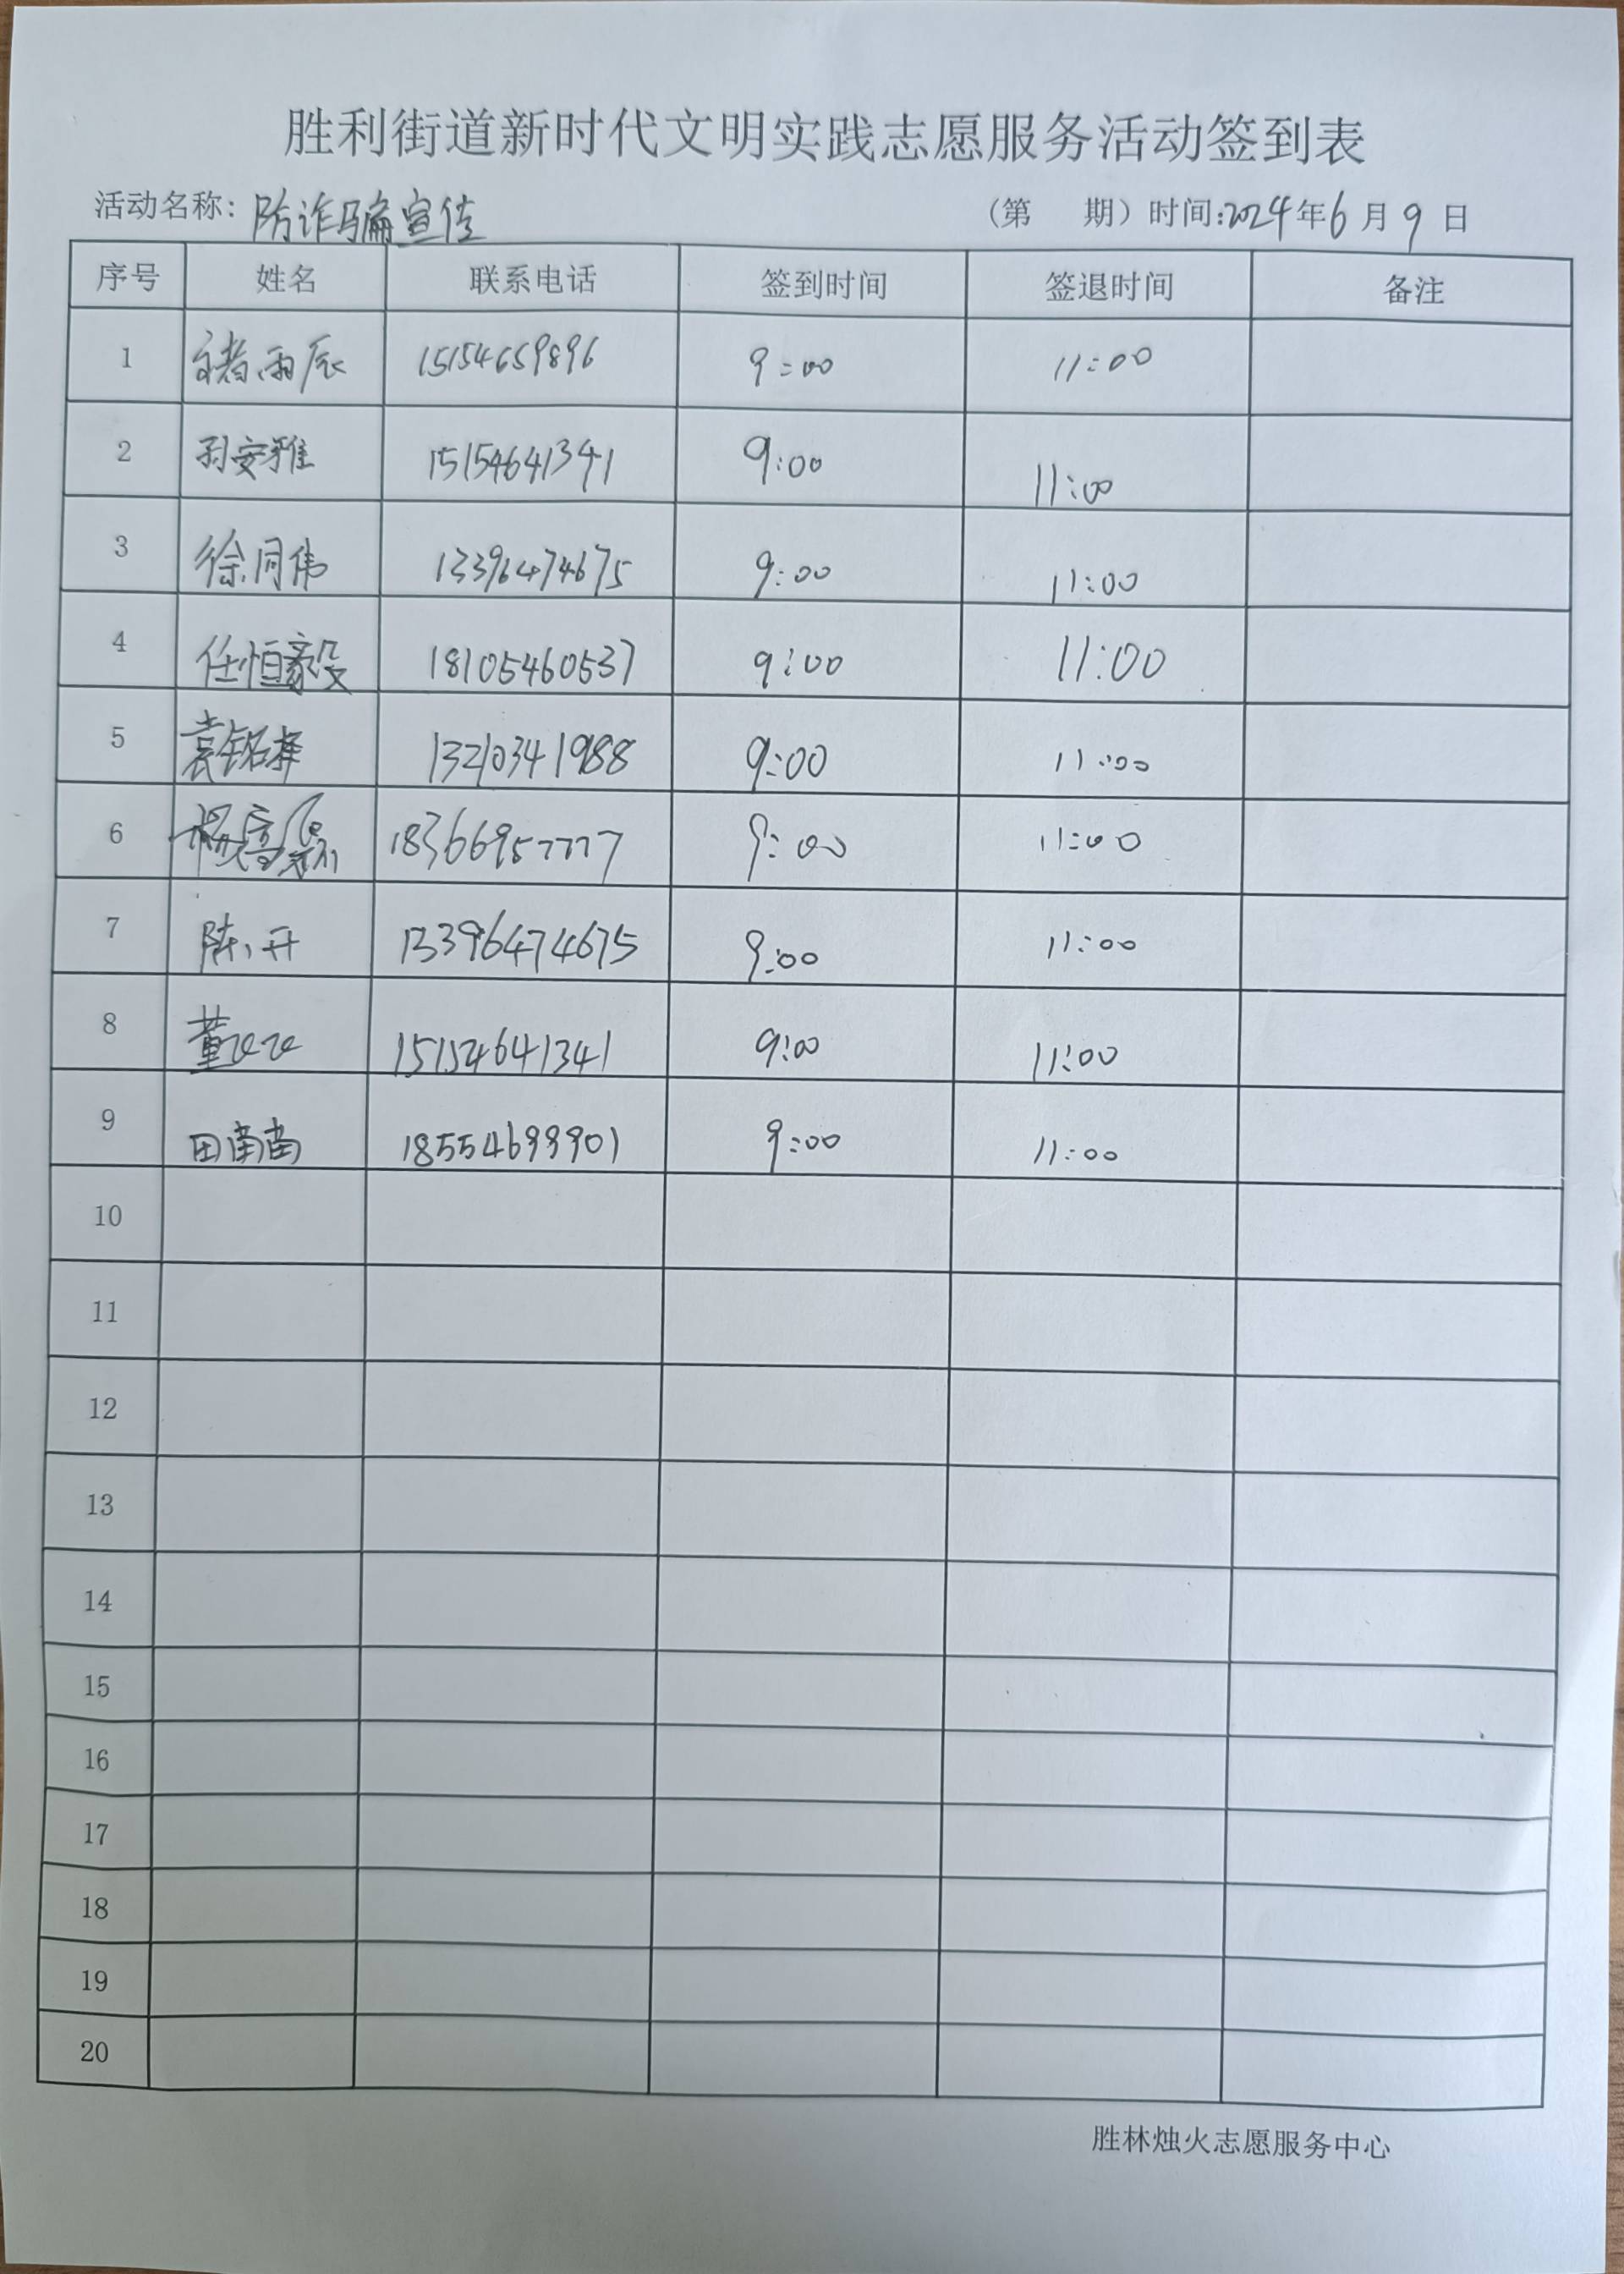 胜利街道新时代文明实践志愿服务活动签到表
活动名称：防诈骗宣传 （第 期）时间：2024年6月9日
序号 姓名 联系电话 签到时间 签退时间 备注
1 褚雨辰 15154659896 9:00 11:00
2 孙安雅 15154641341 9:00 11:00
3 徐同伟 13396474675 9:00 11:00
4 任恒毅 18105460537 9:00 11:00
5 袁铭择 13210341988 9:00 11:00
6 杨 18366957777 9:00 11:00
7 陈 开 13396474675 9:00 11:00
8 董 15154641341 9:00 11:00
9 田苗苗 18554699901 9:00 11:00
10
11
12
13
14
15
16
17
18
19
20
胜林烛火志愿服务中心